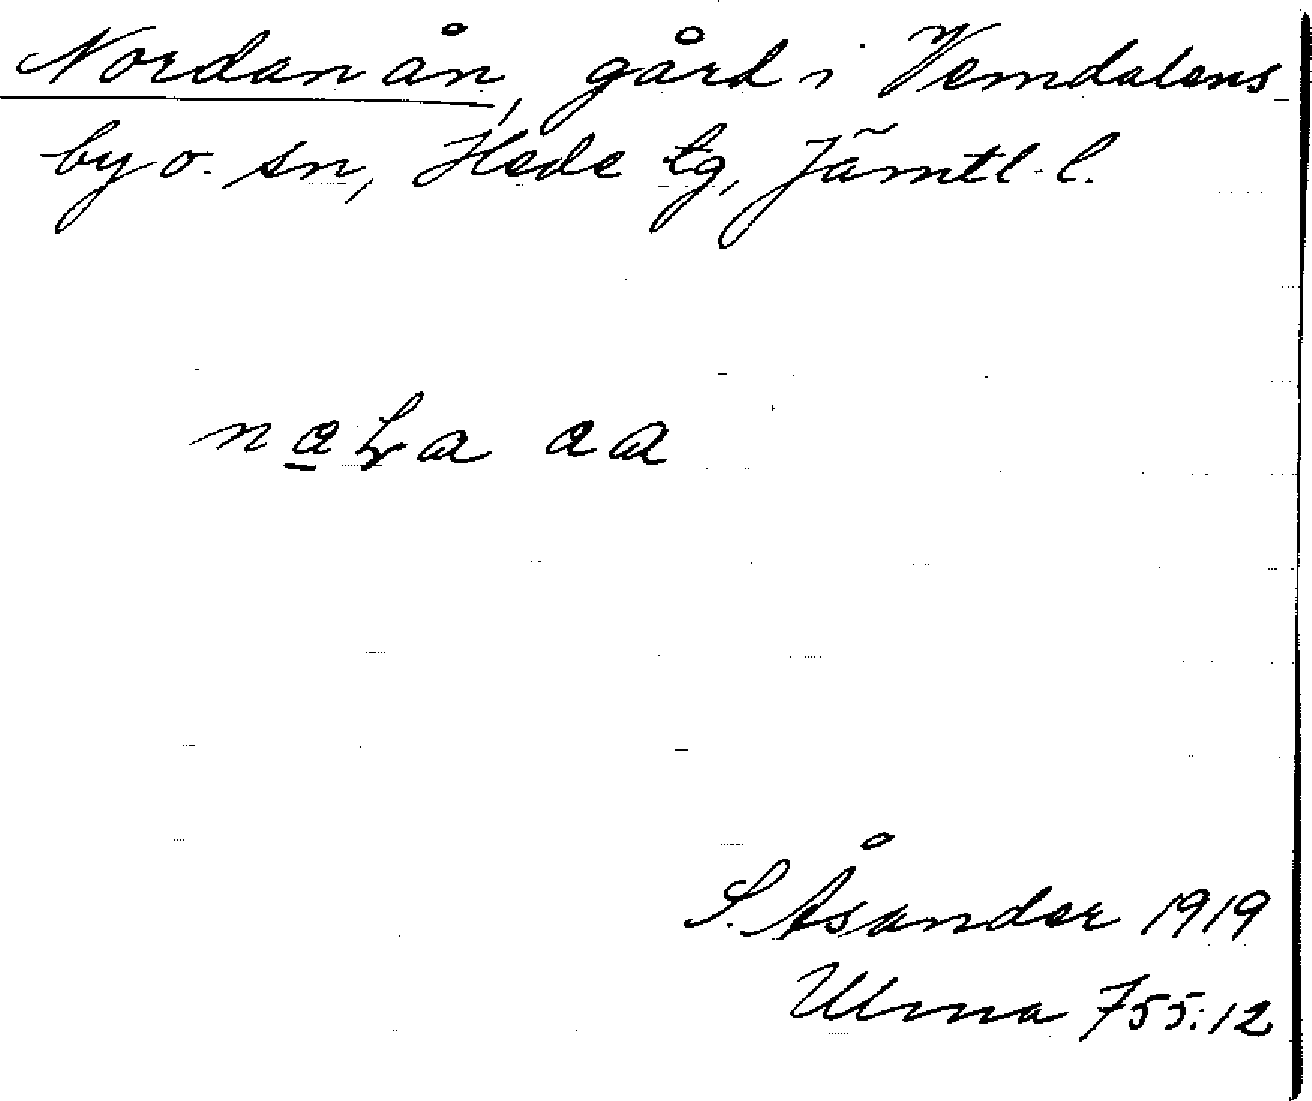 Nordanån, gård i Vemdalens
by o. sn, Hede tg, Jämtl. l.
S. Åsander 1919
Ulma 755:12